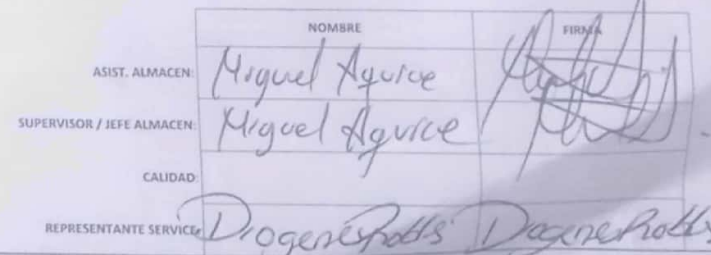 NOMBRE FIRMA
ASIST. ALMACEN: Miguel Aguice
SUPERVISOR / JEFE ALMACEN: Miguel Aguice
CALIDAD:
REPRESENTANTE SERVICE Diogenes